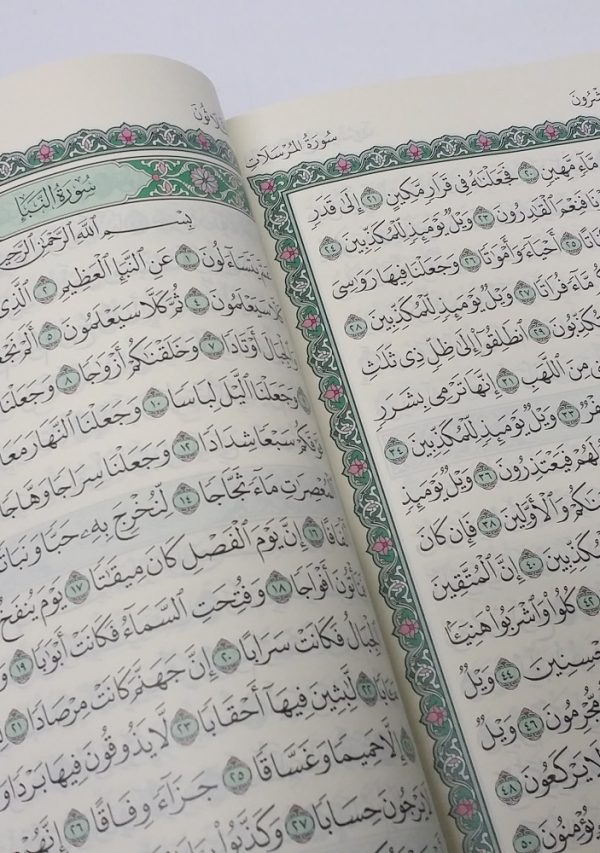 سُورَةُ المُرْسَلَاتِ
مَّآءٍ مَّهِينٍ ٢٠ فَجَعَلْنَٰهُ فِى قَرَارٍ مَّكِينٍ ٢١ إِلَىٰ قَدَرٍ
فَنِعْمَ ٱلْقَٰدِرُونَ ٢٣ وَيْلٌ يَوْمَئِذٍ لِّلْمُكَذِّبِينَ ٢٤
٢٥ أَحْيَآءً وَأَمْوَٰتًا ٢٦ وَجَعَلْنَا فِيهَا رَوَٰسِىَ
مَّآءً فُرَاتًا ٢٧ وَيْلٌ يَوْمَئِذٍ لِّلْمُكَذِّبِينَ ٢٨
٢٩ ٱنطَلِقُوٓا۟ إِلَىٰ ظِلٍّ ذِى ثَلَٰثِ
مِنَ ٱللَّهَبِ ٣١ إِنَّهَا تَرْمِى بِشَرَرٍ
٣٣ وَيْلٌ يَوْمَئِذٍ لِّلْمُكَذِّبِينَ ٣٤
لَهُمْ فَيَعْتَذِرُونَ ٣٦ وَيْلٌ يَوْمَئِذٍ
وَٱلْأَوَّلِينَ ٣٨ فَإِن كَانَ
٤٠ إِنَّ ٱلْمُتَّقِينَ
٤٢ كُلُوا۟ وَٱشْرَبُوا۟ هَنِيٓـًٔۢا
٤٤ وَيْلٌ
٤٦ وَيْلٌ
لَا يَرْكَعُونَ ٤٨
يُؤْمِنُونَ ٥٠
سُورَةُ النَّبَإِ
بِسْمِ ٱللَّهِ ٱلرَّحْمَٰنِ ٱلرَّحِيمِ
يَتَسَآءَلُونَ ١ عَنِ ٱلنَّبَإِ ٱلْعَظِيمِ ٢ ٱلَّذِى
كَلَّا سَيَعْلَمُونَ ٤ ثُمَّ كَلَّا سَيَعْلَمُونَ ٥ أَلَمْ
وَٱلْجِبَالَ أَوْتَادًا ٧ وَخَلَقْنَٰكُمْ أَزْوَٰجًا ٨ وَجَعَلْنَا
وَجَعَلْنَا ٱلَّيْلَ لِبَاسًا ١٠ وَجَعَلْنَا ٱلنَّهَارَ
سَبْعًا شِدَادًا ١٢ وَجَعَلْنَا سِرَاجًا وَهَّاجًا
ٱلْمُعْصِرَٰتِ مَآءً ثَجَّاجًا ١٤ لِّنُخْرِجَ بِهِۦ حَبًّا وَنَبَاتًا
١٦ إِنَّ يَوْمَ ٱلْفَصْلِ كَانَ مِيقَٰتًا ١٧ يَوْمَ يُنفَخُ
أَفْوَاجًا ١٨ وَفُتِحَتِ ٱلسَّمَآءُ فَكَانَتْ أَبْوَٰبًا ١٩
ٱلْجِبَالُ فَكَانَتْ سَرَابًا ٢٠ إِنَّ جَهَنَّمَ كَانَتْ مِرْصَادًا ٢١
٢٢ لَّٰبِثِينَ فِيهَآ أَحْقَابًا ٢٣ لَّا يَذُوقُونَ فِيهَا بَرْدًا
إِلَّا حَمِيمًا وَغَسَّاقًا ٢٥ جَزَآءً وِفَاقًا ٢٦ إِنَّهُمْ
لَا يَرْجُونَ حِسَابًا ٢٧ وَكَذَّبُوا۟